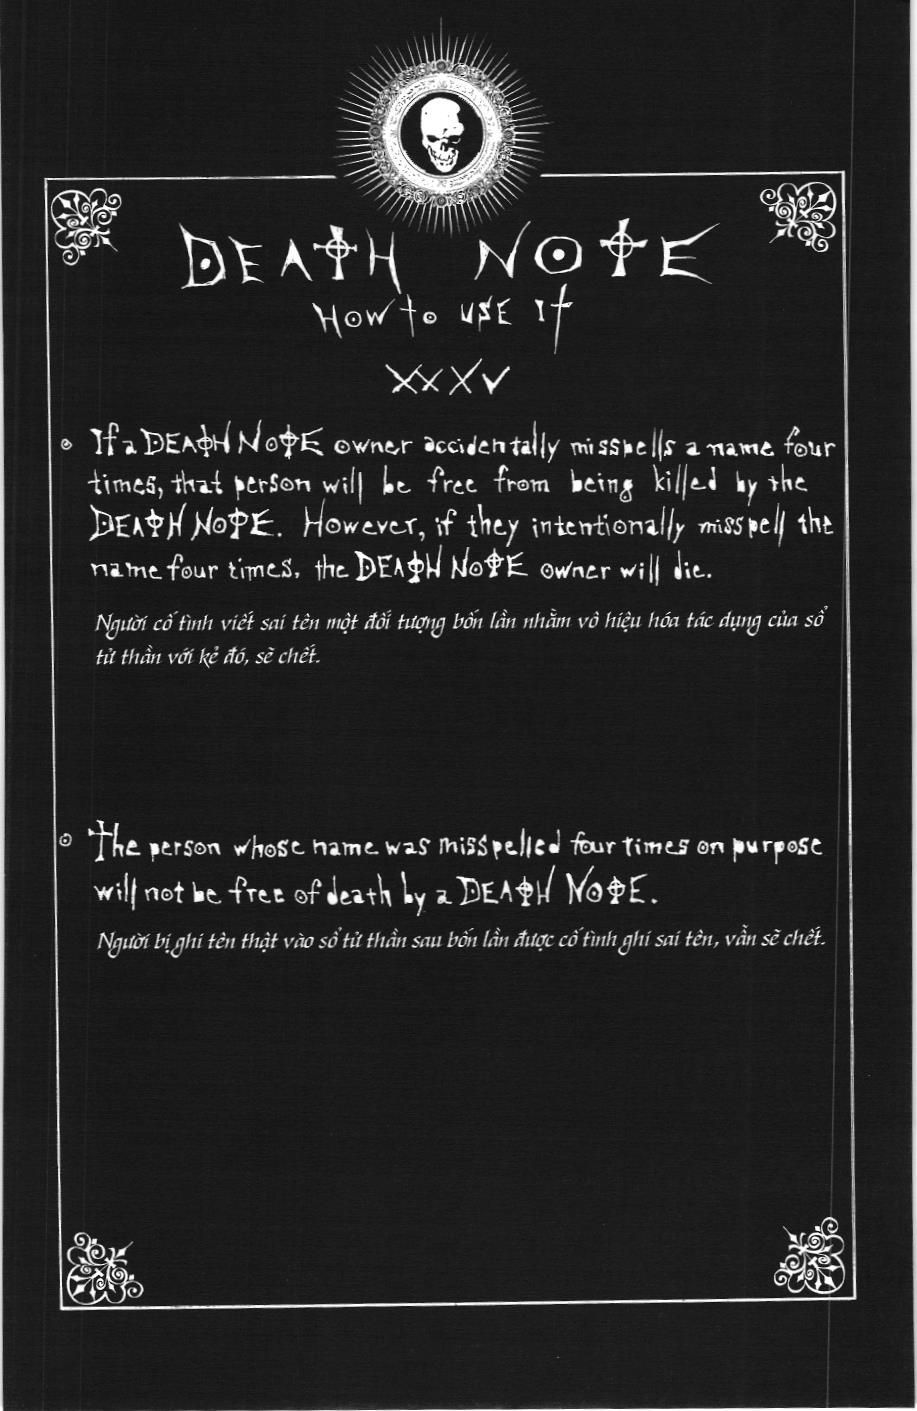 DEATH NOTE
How to use it
XXXV
If a DEATH NOTE owner accidentally misspells a name four
times, that person will be free from being killed by the
DEATH NOTE. However, if they intentionally misspell the
name four times, the DEATH NOTE owner will die.
Người cố tình viết sai tên một đối tượng bốn lần nhằm vô hiệu hóa tác dụng của sổ
tử thần với kẻ đó, sẽ chết.
The person whose name was misspelled four times on purpose
will not be free of death by a DEATH NOTE.
Người bị ghi tên thật vào sổ tử thần sau bốn lần được cố tình ghi sai tên, vẫn sẽ chết.